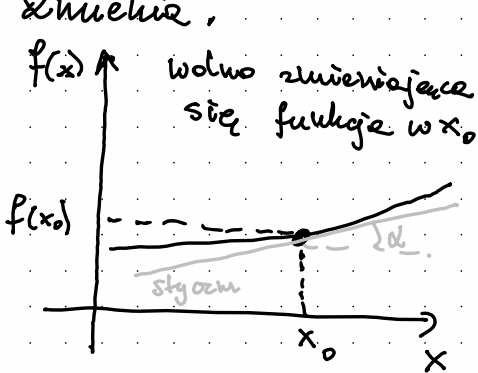 zmienia.
f(x)
wolno zmieniająca
się funkcja w x₀
f(x₀)
α
styczna
x₀
x